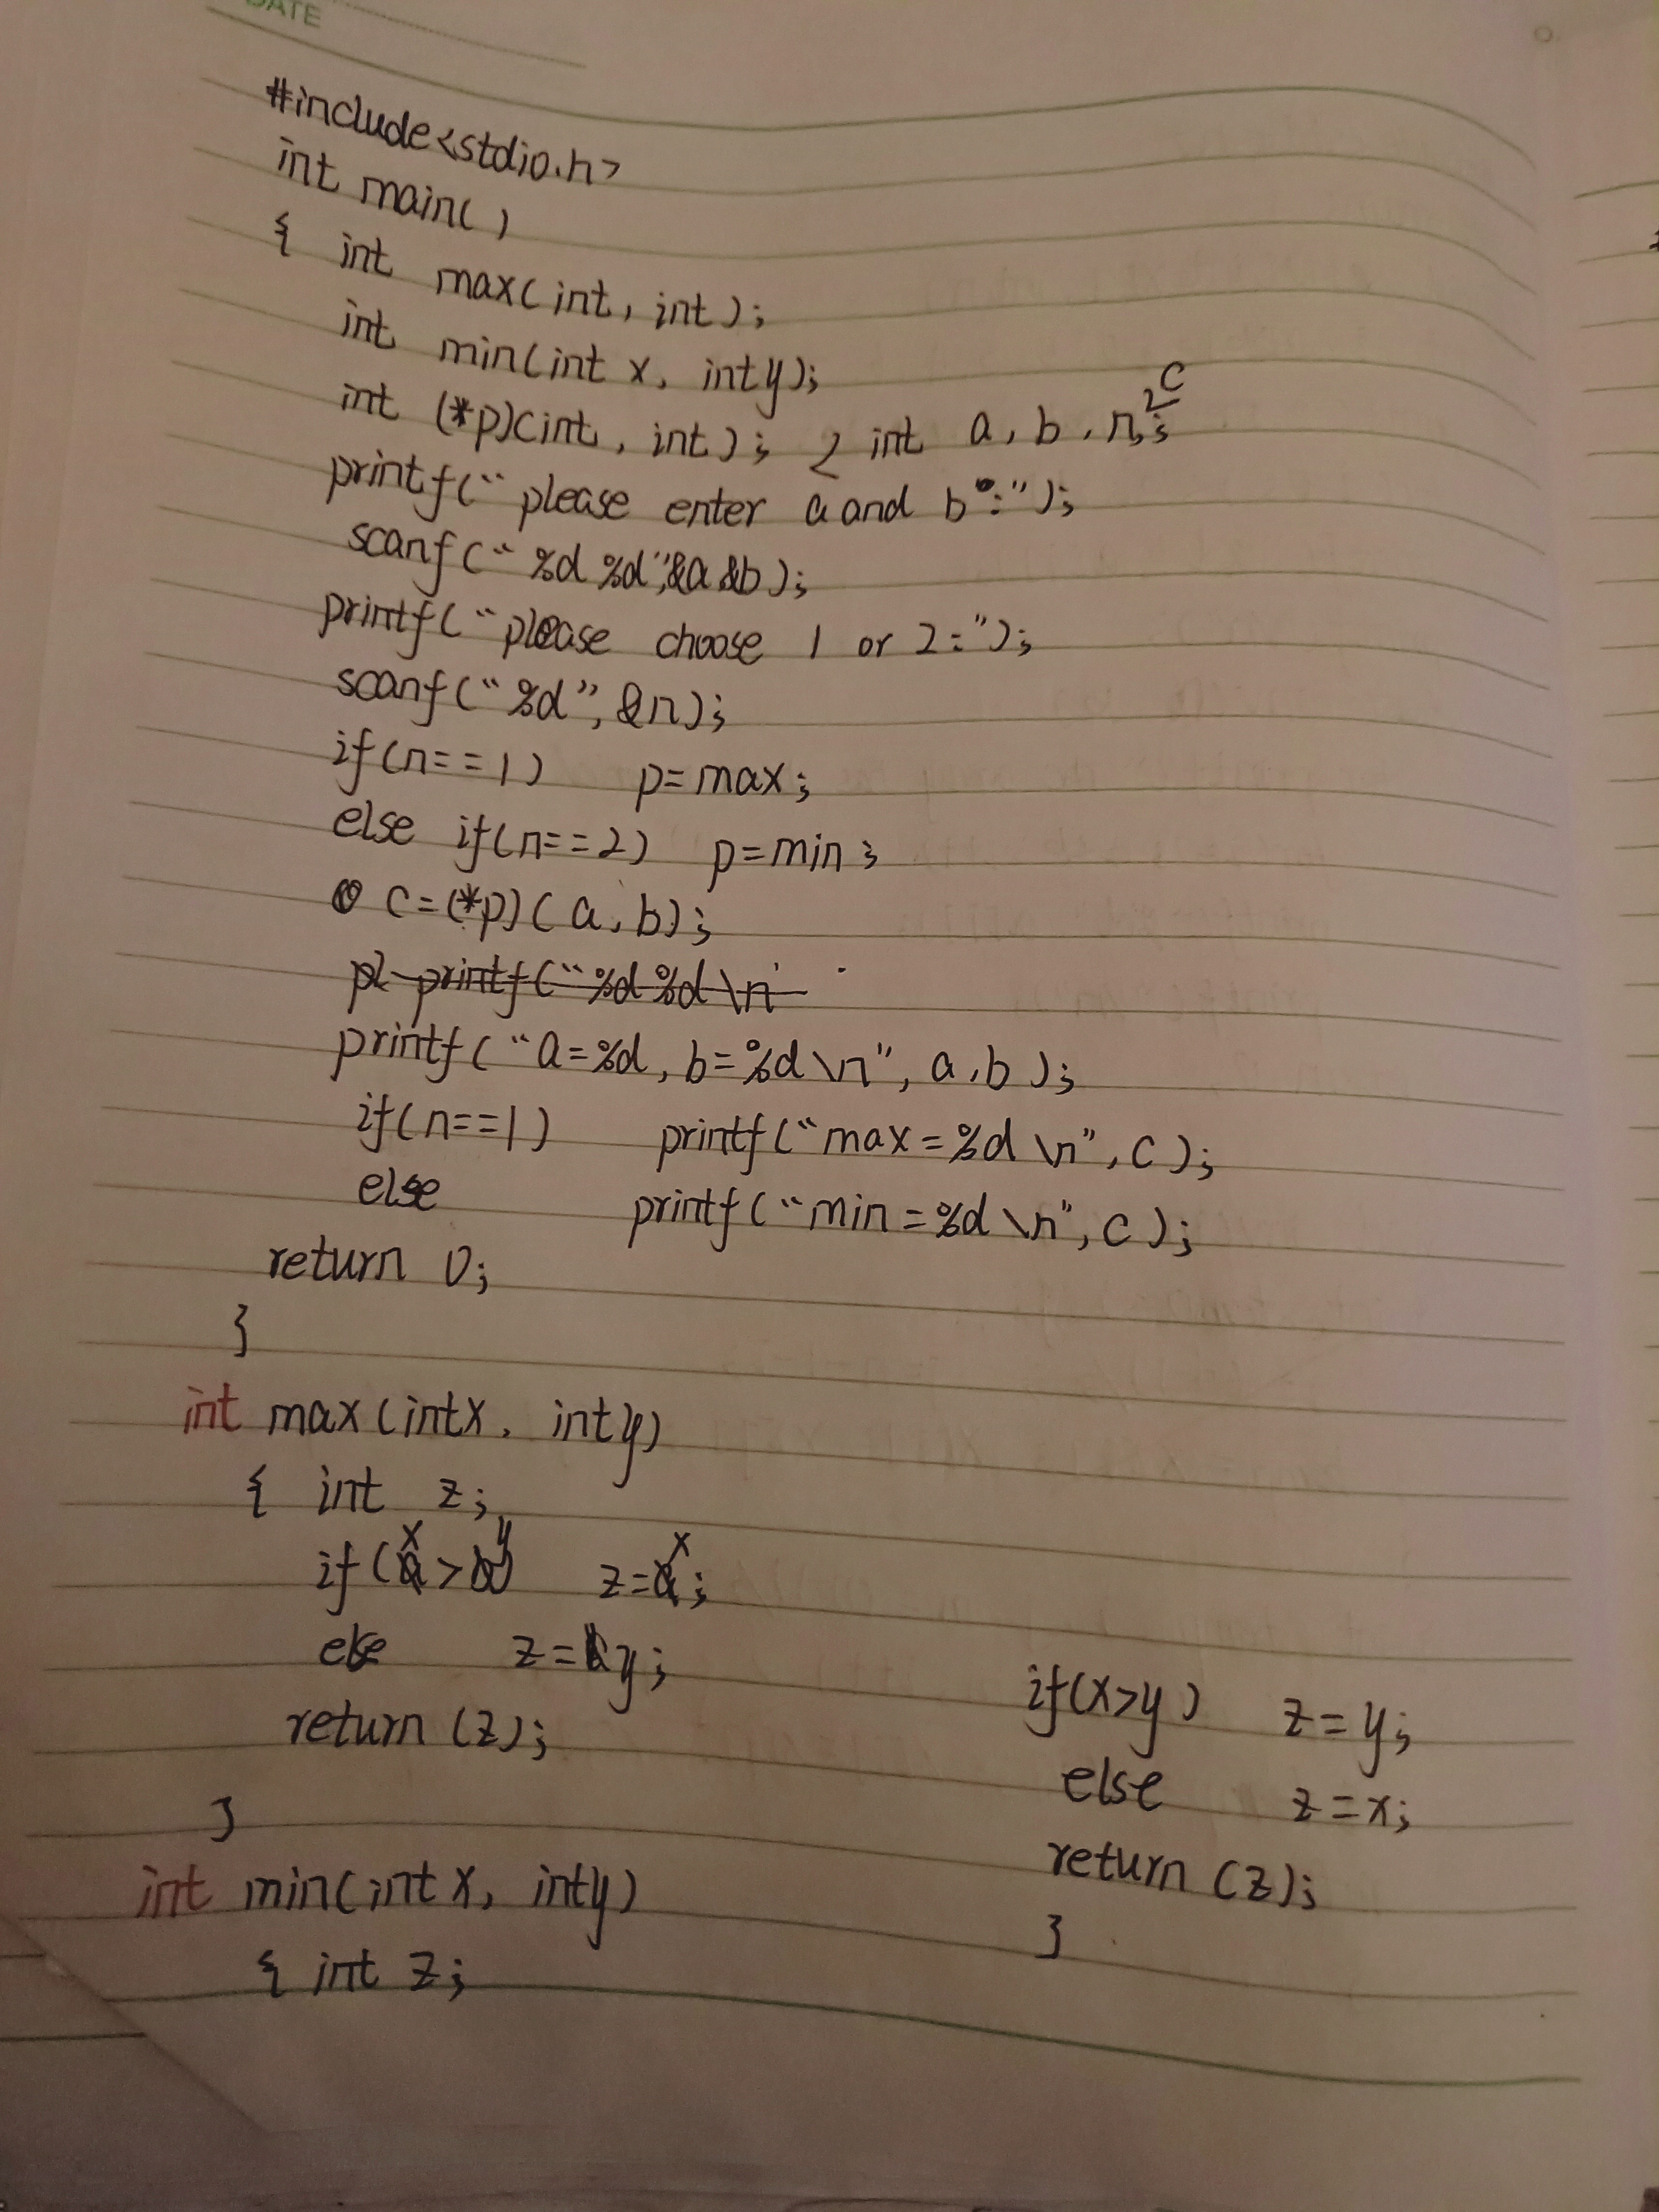 DATE
#include<stdio.h>
int main()
{ int max(int, int);
int min(int x, int y);
int (*p)(int, int); int a, b, n, c;
printf("please enter a and b:");
scanf("%d %d",&a &b);
printf("please choose 1 or 2:");
scanf("%d", &n);
if(n==1) p=max;
else if(n==2) p=min;
c=(*p)(a, b);
printf("%d %d \n
printf("a=%d, b=%d \n", a, b);
if(n==1) printf("max=%d \n", c);
else printf("min=%d \n", c);
return 0;
}
int max(int x, int y)
{ int z;
if(x>y) z=x;
else z=y;
return (z);
}
int min(int x, int y)
{ int z;
if(x>y) z=y;
else z=x;
return (z);
}